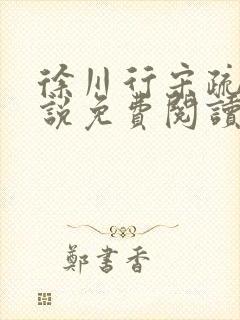 徐川行宋疏
說免費閱讀
鄭書香